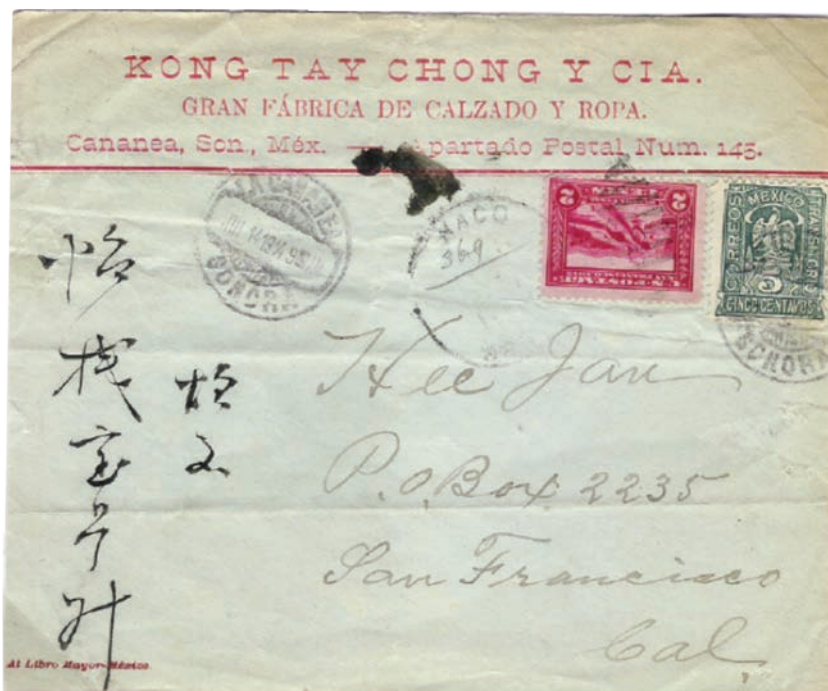 KONG TAY CHONG Y CIA.
GRAN FÁBRICA DE CALZADO Y ROPA.
Cananea, Son., Méx. — Apartado Postal Num. 145.
SONORA
NACO
369
2
CORREOS MEXICO
5
CINCO CENTAVOS
SONORA
怡
棧
宝
号
升
Kee Jan
P.O. Box 2235
San Francisco
Cal,
Al Libro Mayor-México.